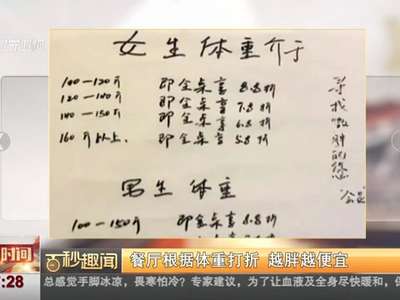 女生体重介于
100—120斤 即全桌享8.8折
120—140斤 即全桌享7.8折
140—150斤 即全桌享6.8折
160斤以上. 即全桌享5.8折
寻找 胖的您
男生体重
100—150斤 即全桌享8.8折
时间
百秒趣闻
餐厅根据体重打折 越胖越便宜
:28
总感觉手脚冰凉，畏寒怕冷？专家建议，为了让血液及全身尽快暖和，